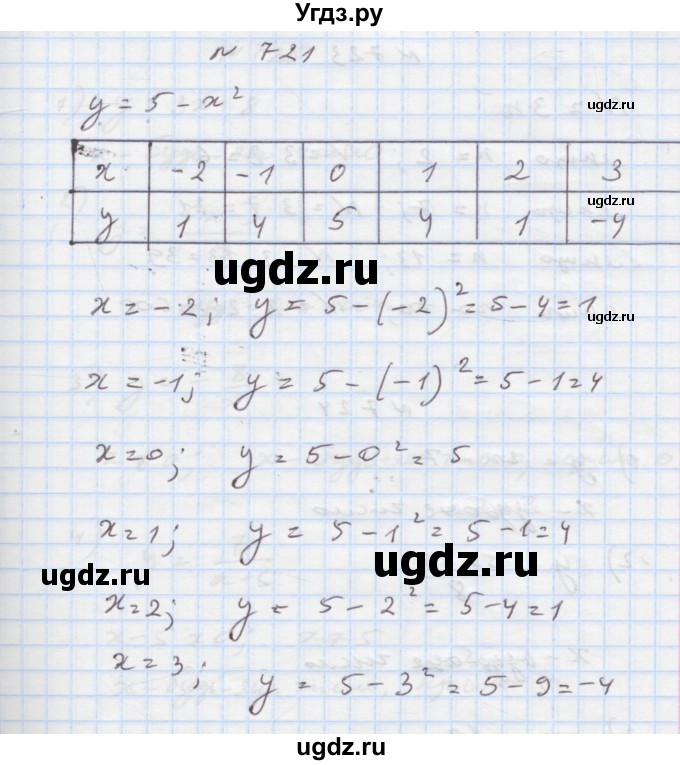 Угдз.ру
N 721
y = 5 - x²
ugdz.ru
x -2 -1 0 1 2 3
y 1 4 5 4 1 -4
ugdz.ru
ugdz.ru
x = -2; y = 5 - (-2)² = 5 - 4 = 1
ugdz.ru
x = -1; y = 5 - (-1)² = 5 - 1 = 4
x = 0; y = 5 - 0² = 5
ugdz.ru
x = 1; y = 5 - 1² = 5 - 1 = 4
ugdz.ru
ugdz.ru
x = 2; y = 5 - 2² = 5 - 4 = 1
x = 3; y = 5 - 3² = 5 - 9 = -4
ugdz.ru